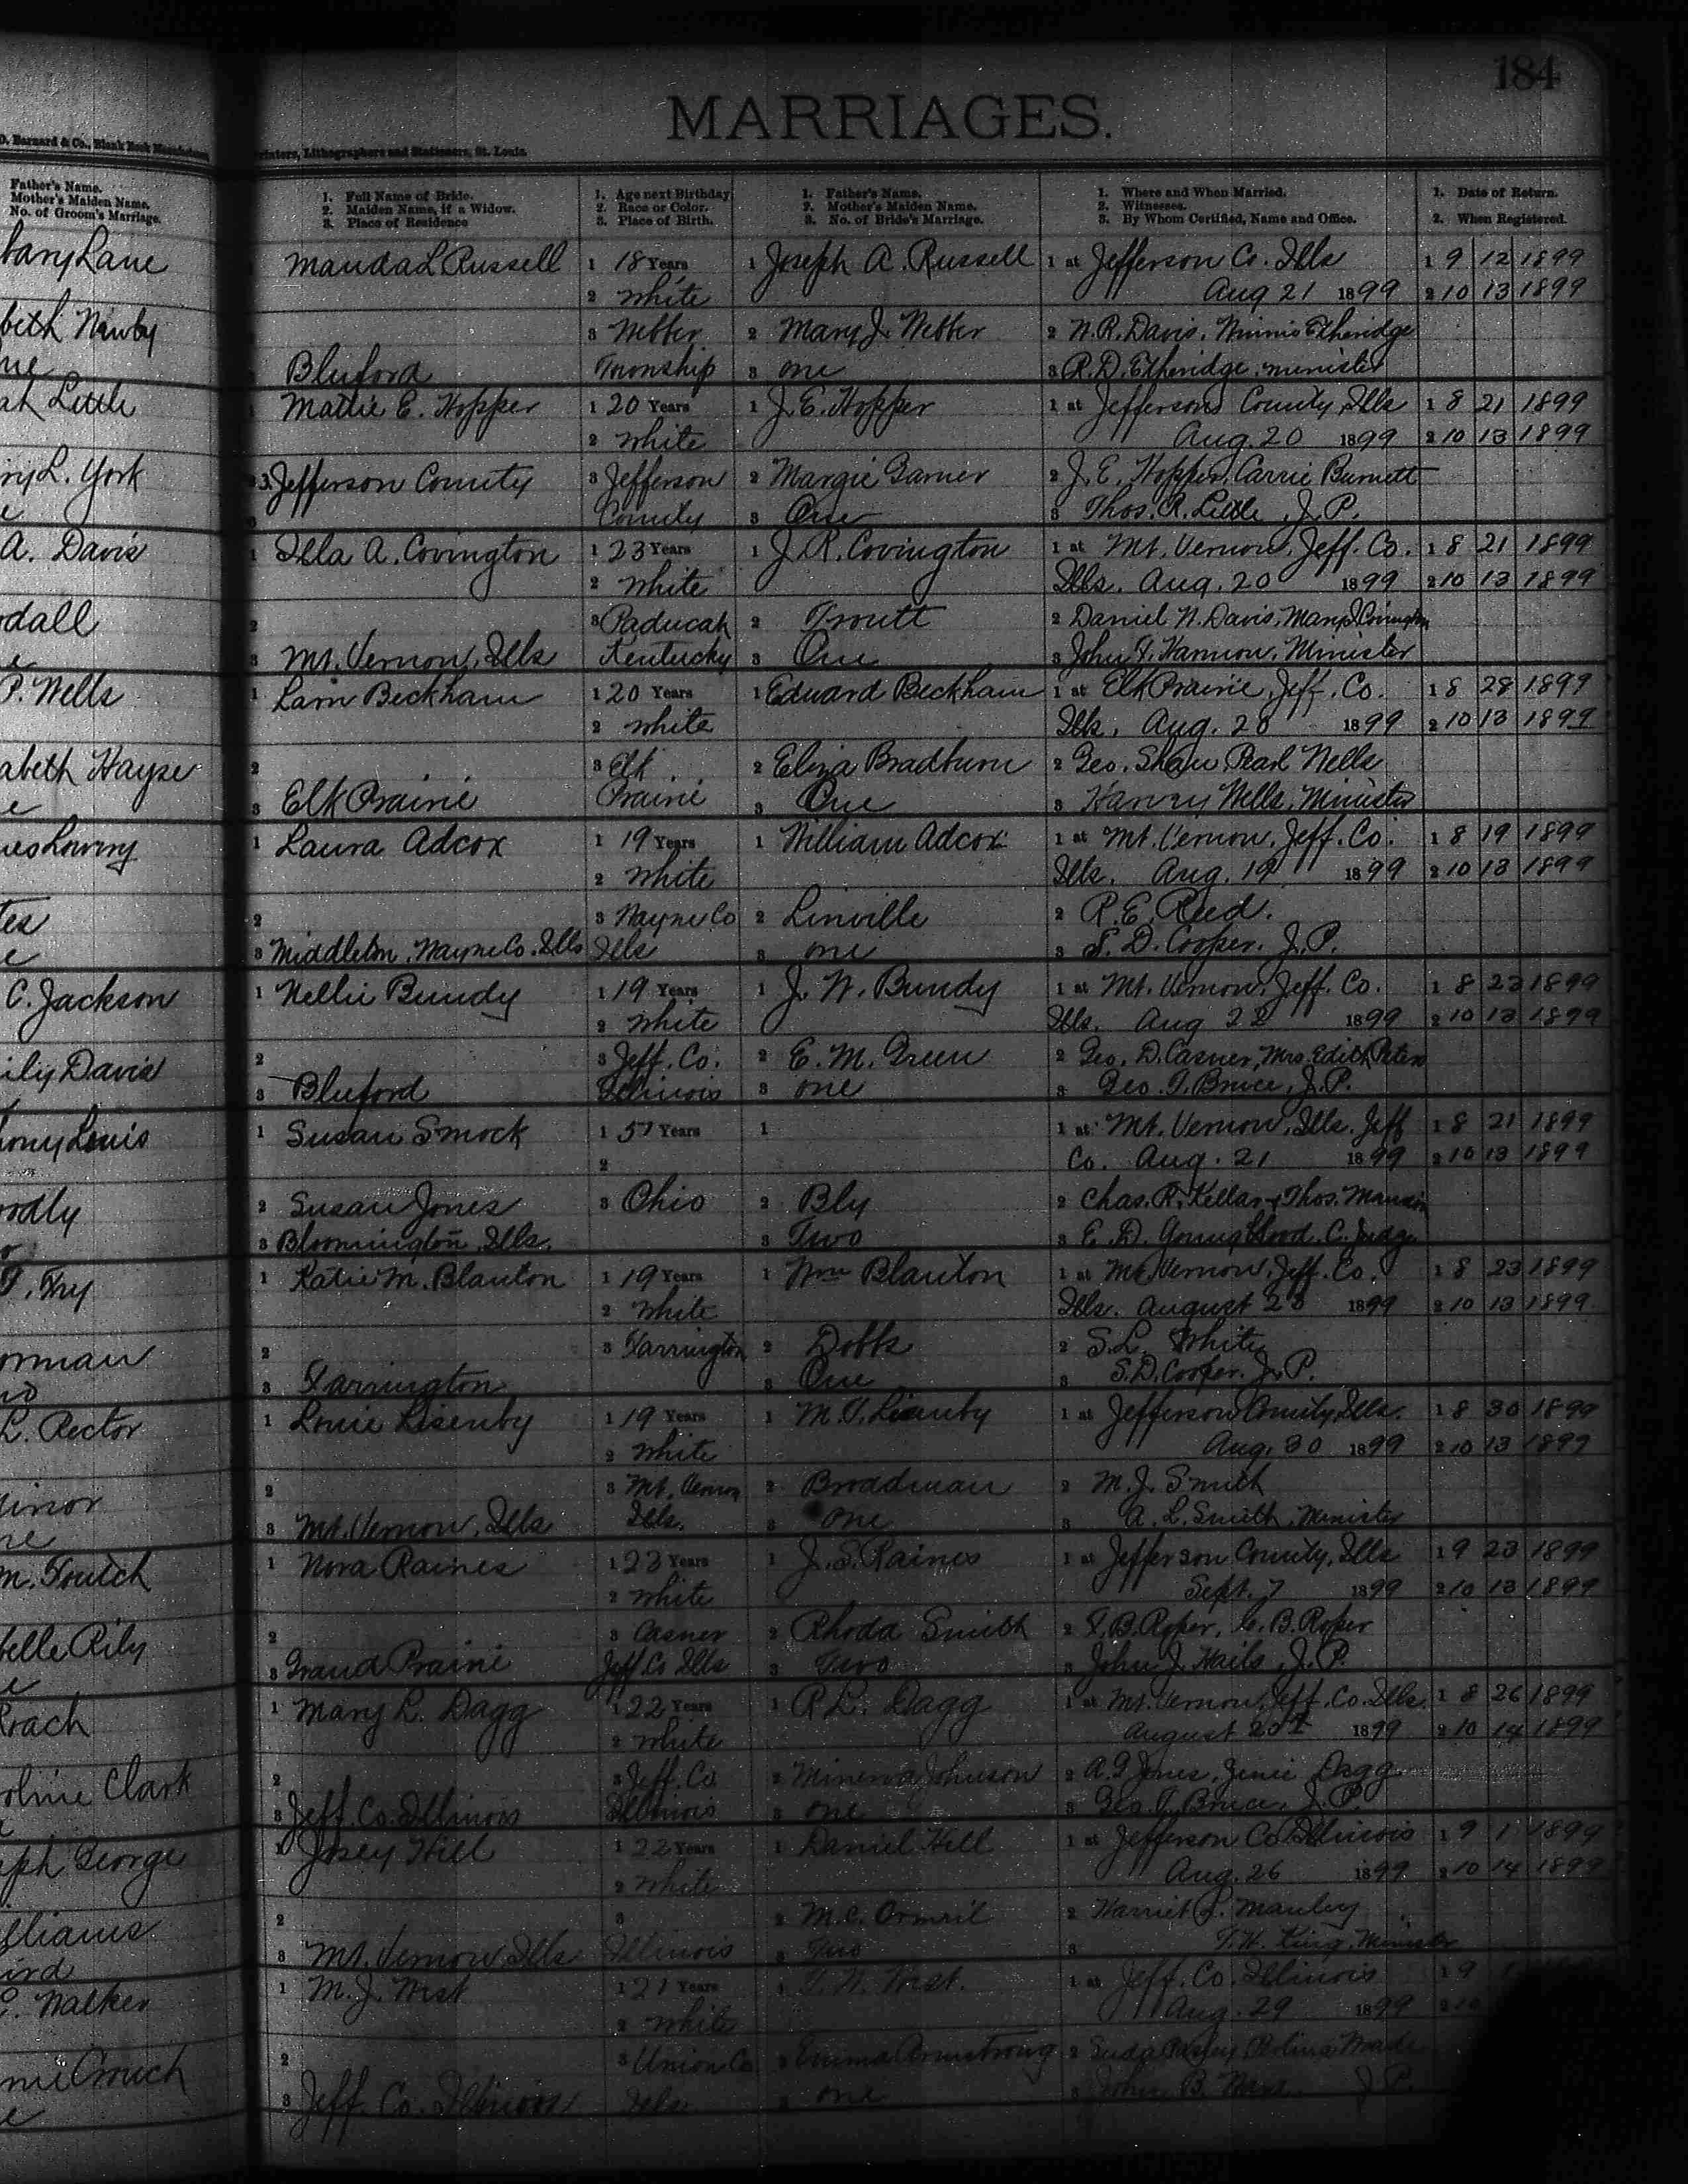 184
MARRIAGES.
D. Barnard & Co., Blank Book
Printers, Lithographers and Stationers, St. Louis.
Father's Name.
Mother's Maiden Name.
No. of Groom's Marriage.
1. Full Name of Bride.
2. Maiden Name, if a Widow.
3. Place of Residence
1. Age next Birthday
2. Race or Color.
3. Place of Birth.
1. Father's Name.
2. Mother's Maiden Name.
3. No. of Bride's Marriage.
1. Where and When Married.
2. Witnesses.
3. By Whom Certified, Name and Office.
1. Date of Return.
2. When Registered.
Lane
Mauda L Russell 1 18 Years 1 Joseph A. Russell 1 at Jefferson Co. Ills 1 9 12 1899
2 White Aug 21 1899 2 10 13 1899
beth Newby
3 Webber 2 Mary J. Webber 2 W. R. Davis, Etheridge
Bluford Township 3 one 3 R. D. Etheridge, minister
ah Little
1 Mattie E. Hopper 1 20 Years 1 J. E. Hopper 1 at Jefferson County, Ills 1 8 21 1899
2 White Aug. 20 1899 2 10 13 1899
ry L. York
3 Jefferson County 3 Jefferson 2 Margie Garner 2 J. E. Hopper, Carrie Burnett
County 3 One 3 Thos. R. Little, J. P.
A. Davis
1 Illa A. Covington 1 23 Years 1 J. R. Covington 1 at Mt. Vernon, Jeff. Co. 1 8 21 1899
2 White Ills. Aug. 20 1899 2 10 13 1899
dall
2 3 Paducah 2 Troutt 2 Daniel N. Davis, Mary J Covington
3 Mt. Vernon, Ills Kentucky 3 One 3 John T. Hannon, Minister
P. Wells
1 Larn Beckham 1 20 Years 1 Edward Beckham 1 at Elk Prairie, Jeff. Co. 1 8 28 1899
2 White Ills, Aug. 28 1899 2 10 13 1899
abeth Hayse
2 3 Elk 2 Eliza Bradburn 2 Geo. Shaw, Pearl Wells
3 Elk Prairie Prairie 3 One 3 Harvey Wells, Minister
Lowry
1 Laura Adcox 1 19 Years 1 William Adcox 1 at Mt. Vernon, Jeff. Co. 1 8 19 1899
2 White Ills. Aug. 19 1899 2 10 13 1899
2 3 Wayne Co 2 Linville 2 R. E. Reed.
3 Middleton, Wayne Co. Ills Ills 3 one 3 S. D. Cooper, J. P.
C. Jackson
1 Nellie Bundy 1 19 Years 1 J. W. Bundy 1 at Mt. Vernon, Jeff. Co. 1 8 23 1899
2 White Ills. Aug 22 1899 2 10 13 1899
ily Davis
2 3 Jeff. Co. 2 E. M. Green 2 Geo. D. Casner, Mrs. Edith Peters
3 Bluford Illinois 3 one 3 Geo. T. Bruce, J. P.
Louis
1 Susan Smock 1 51 Years 1 1 at Mt. Vernon, Ills. Jeff 1 8 21 1899
2 Co. Aug. 21 1899 2 10 13 1899
2 Susan Jones 3 Ohio 2 Bly 2 Chas. R. Kellar, Thos.
3 Bloomington, Ills. 3 Two 3 E. D. Youngblood C. Judge
T. Fry
1 Katie M. Blanton 1 19 Years 1 Wm Blanton 1 at Mt. Vernon, Jeff. Co. 1 8 23 1899
2 White Ills. August 23 1899 2 10 13 1899
orman
2 3 Farrington 2 Dobbs 2 S. L. White
3 Farrington 3 One 3 S. D. Cooper, J. P.
L. Rector
1 Louie Lisenby 1 19 Years 1 M. T. Lisenby 1 at Jefferson County, Ills. 1 8 30 1899
2 White Aug. 30 1899 2 10 13 1899
2 3 Mt. Vernon 2 Broadman 2 M. J. Smith
3 Mt. Vernon, Ills Ills. 3 one 3 A. L. Smith, Minister
m. Foutch
1 Nora Raines 1 23 Years 1 J. S. Raines 1 at Jefferson County, Ills 1 9 23 1899
2 White Sept. 7 1899 2 10 13 1899
belle Rily
2 3 Casner 2 Rhoda Smith 2 F. B. Roper, B. Roper
3 Grand Prairie Jeff Co Ills 3 Two 3 John J. Hails, J. P.
Roach
1 Mary L. Dagg 1 22 Years 1 R L. Dagg 1 at Mt. Vernon, Jeff. Co. Ills. 1 8 26 1899
2 White August 1899 2 10 14 1899
oline Clark
2 3 Jeff. Co 2 Minerva Johnson 2 A. G. Jones, Dagg
3 Jeff. Co. Illinois Illinois 3 one 3 Geo. T. Bruce, J. P.
eph George
1 Josey Hill 1 22 Years 1 Daniel Hill 1 at Jefferson Co Illinois 1 9 1 1899
2 White Aug. 26 1899 2 10 14 1899
lliams
2 3 2 M. C. Ormril 2 Harriet L. Manley
3 Mt. Vernon Ills Illinois 3 Two 3 T. W. King, Minister
C. Walker
1 M. J. West 1 21 Years 1 West. 1 at Jeff. Co. Illinois 1 9
2 White Aug. 29 1899 2 10
Crouch
2 3 Union Co 2 Emma Armstrong 2
3 Jeff. Co. Illinois Ills 3 one 3 John B. J. P.